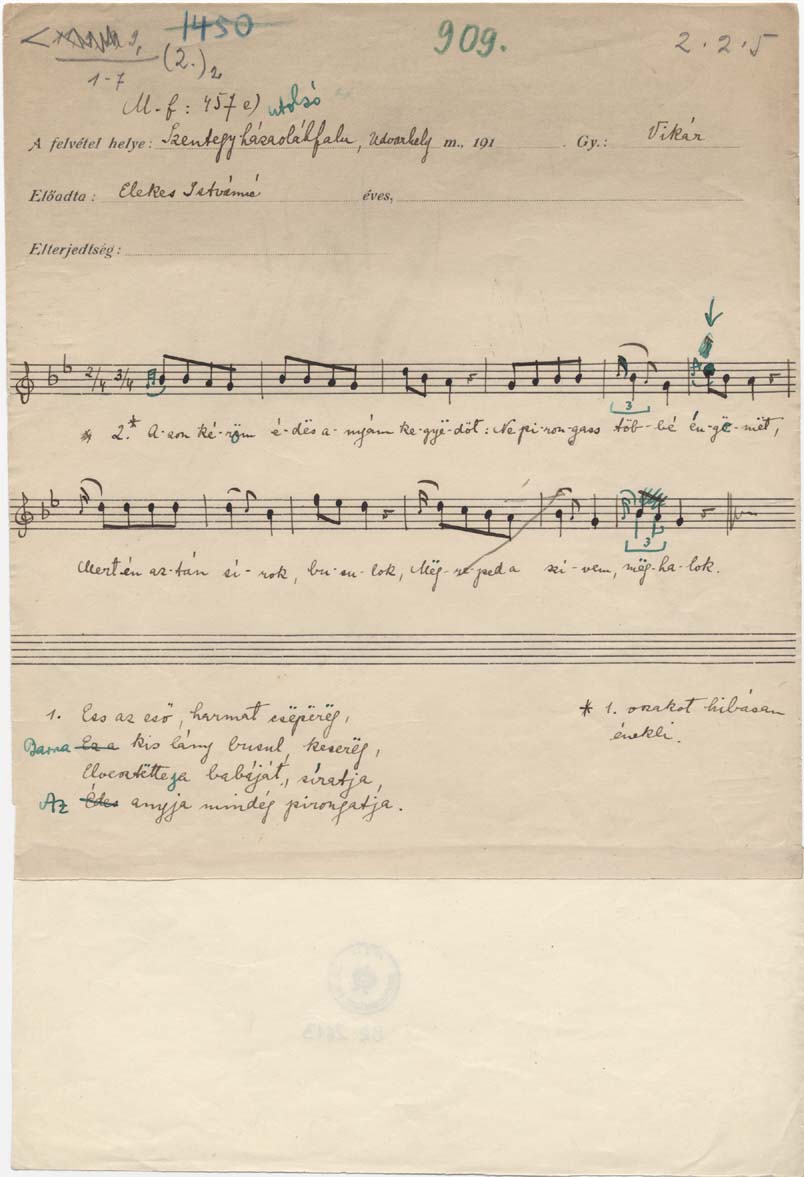 1450
909.
2.2.5
1-7
(2.)2
M-f: 457 e) utolsó
A felvétel helye: Szentegyházaoláhfalu, Udvarhely m., 191 . Gy.: Vikár
Előadta: Elekes Istvánné éves,
Elterjedtség:
2/4 3/4
3
* 2.* A-zon ké-röm é-dës a-nyám ke-gyë-döt: Ne pi-ron-gass töb-bé én-gë-mët,
3
Mert én az-tán sí-rok, bu-su-lok, Mëg-re-ped a szi-vem, mëg-ha-lok.
1. Ess az eső, harmat csëpërëg,
Barna Ez a kis lány busul, keserëg,
Elvesztëtte a babáját, síratja,
Az Édes anyja mindég pirongatja.
* 1. szakot hibásan
énekli.